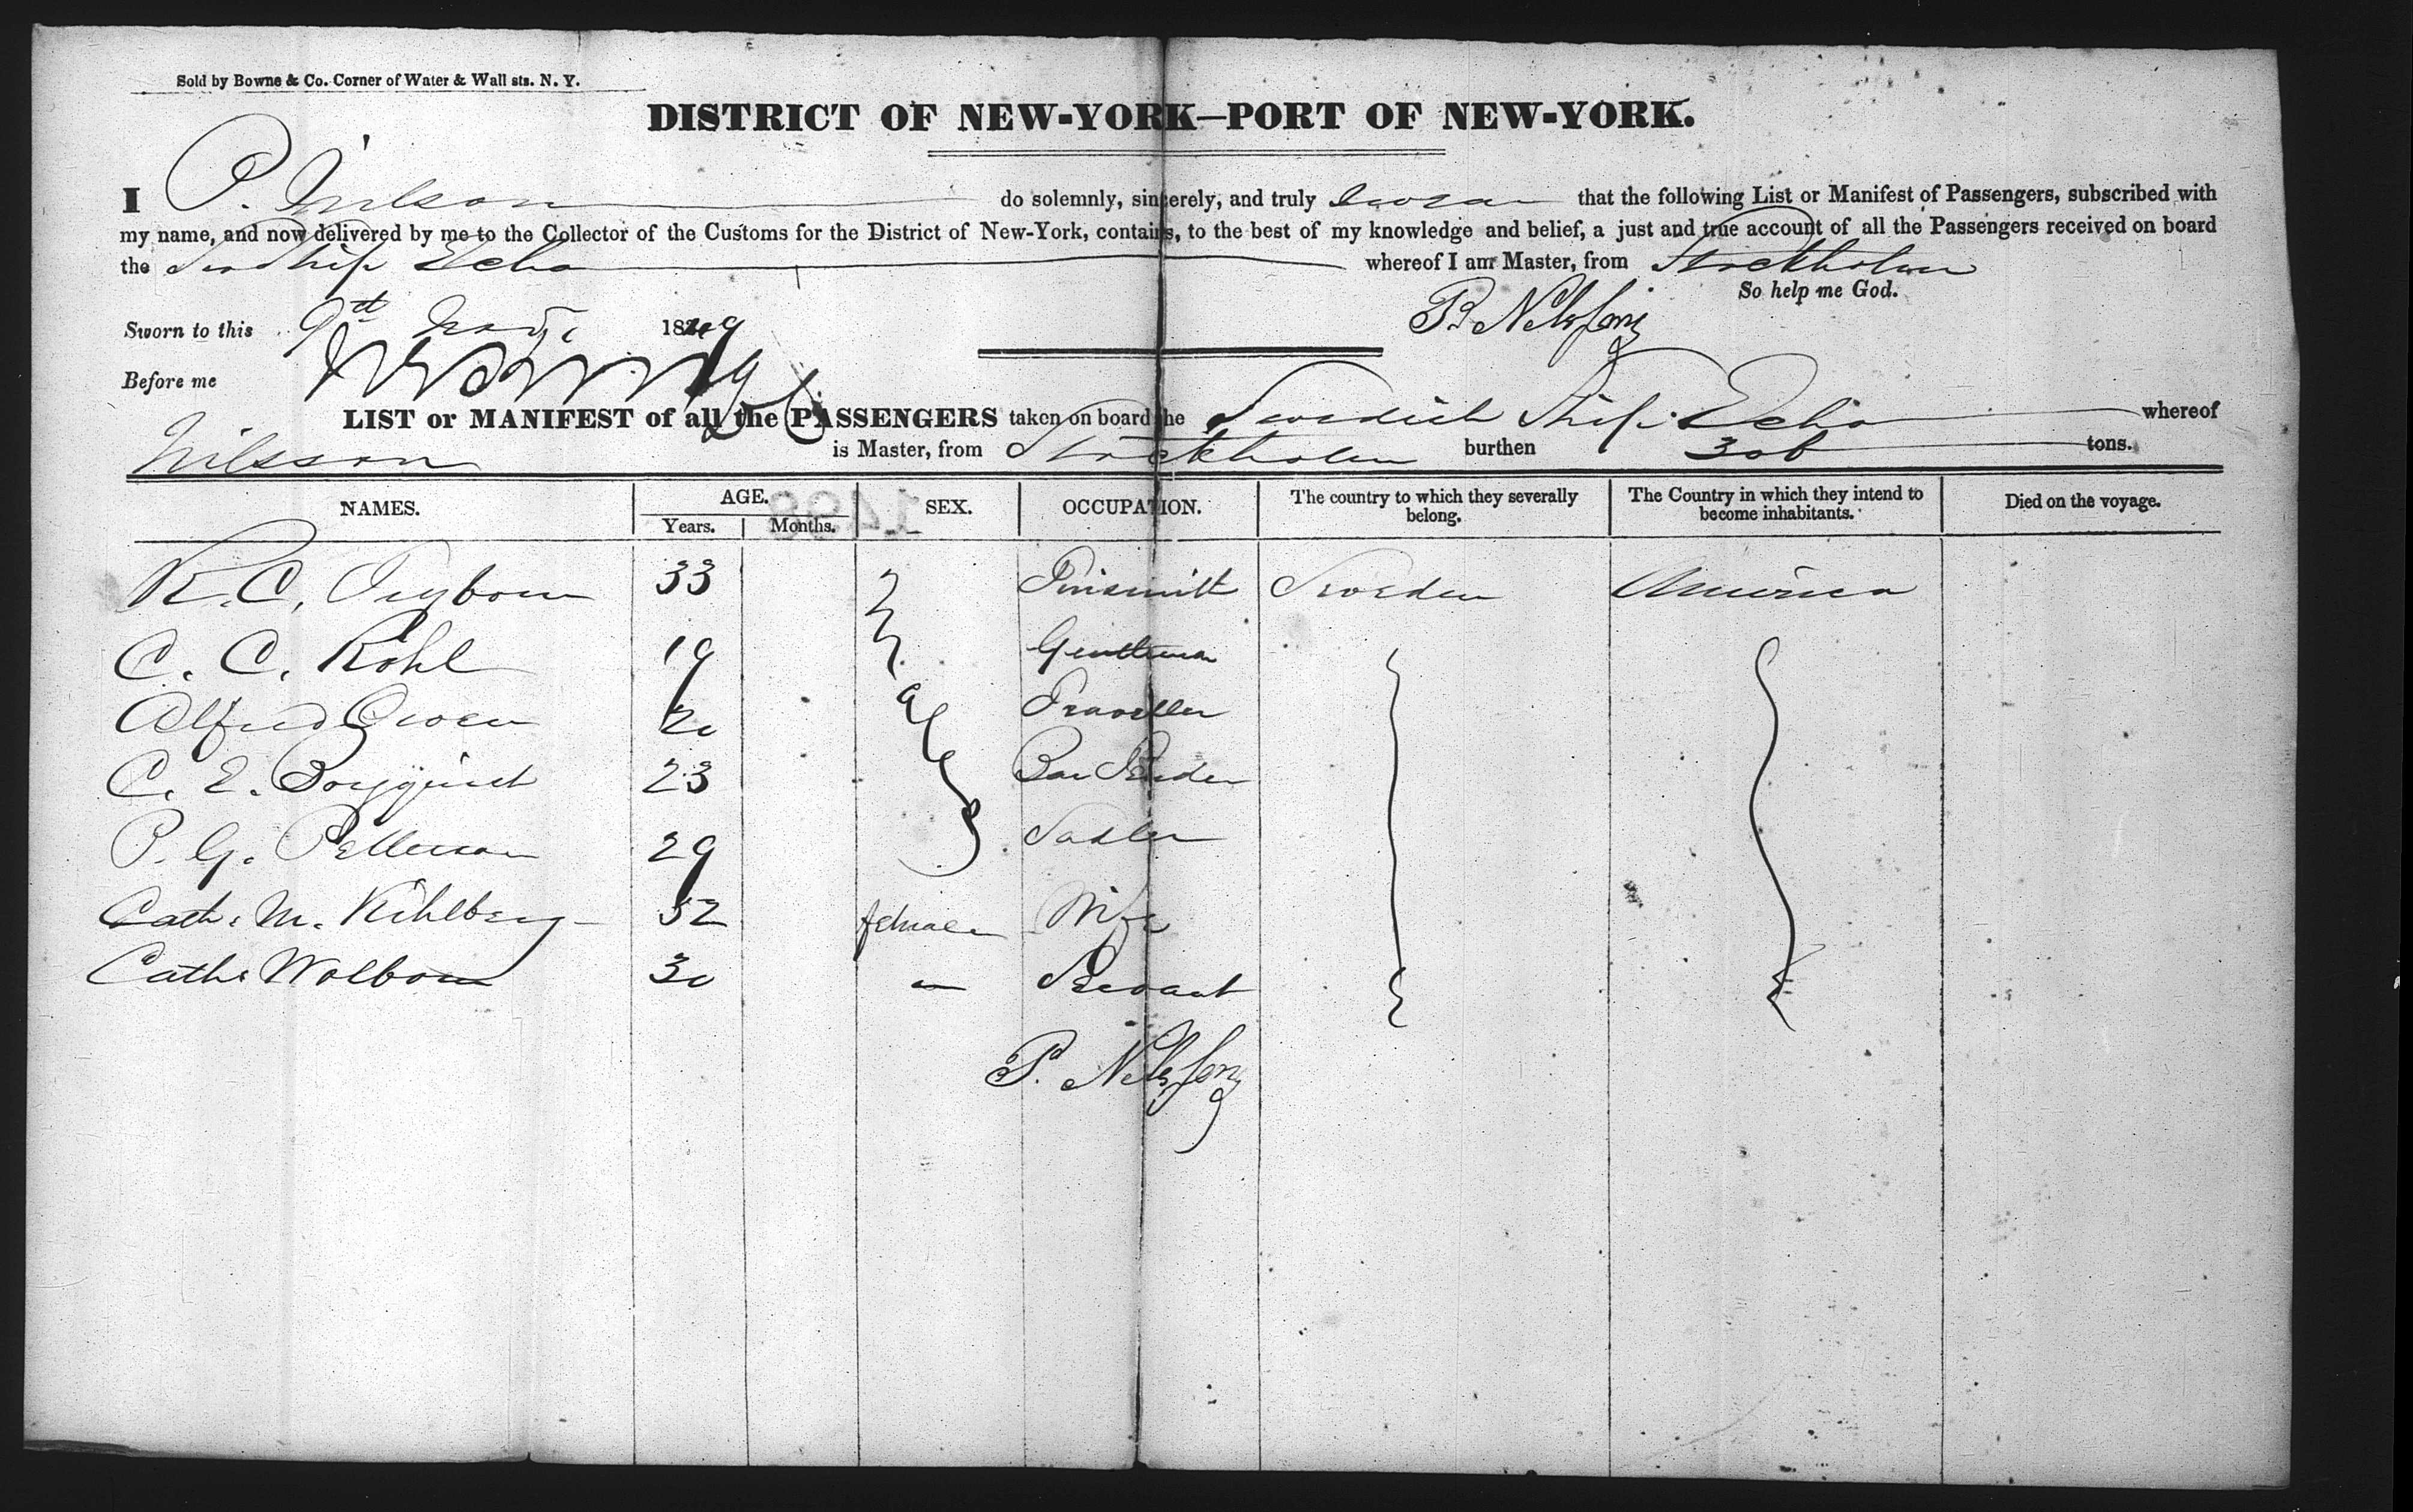 Sold by Bowne & Co. Corner of Water & Wall sts. N. Y.
DISTRICT OF NEW-YORK—PORT OF NEW-YORK.
I P. Nilson do solemnly, sincerely, and truly swear that the following List or Manifest of Passengers, subscribed with
my name, and now delivered by me to the Collector of the Customs for the District of New-York, contains, to the best of my knowledge and belief, a just and true account of all the Passengers received on board
the Swed Ship Echo whereof I am Master, from Stockholm
So help me God.
Sworn to this 9th 1849
Before me
LIST or MANIFEST of all the PASSENGERS taken on board the Swedish Ship Echo whereof
Nilsson is Master, from Stockholm burthen 306 tons.
NAMES. AGE. Years. Months. SEX. OCCUPATION. The country to which they severally belong. The Country in which they intend to become inhabitants. Died on the voyage.
1499
33 Tinsmitt Sweden America
C. C. Kohl 19 Gentleman
Alfred Owen 20 Traveller
C. E. 23
P. G. Petterson 29 Sadler
Cath: M. Kihlberg 52 female Wife
Cath: Wolbom 30 " Servant
P. Nelsson